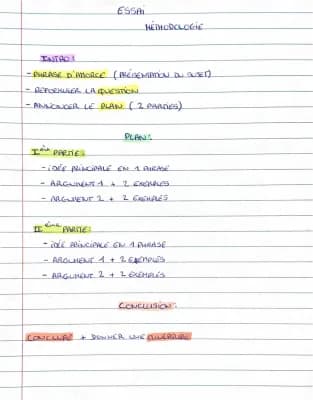 ESSAI
MÉTHODOLOGIE
INTRO:
- PHRASE D'AMORCE (PRÉSENTATION DU SUJET)
- REFORMULER LA QUESTION
- ANNONCER LE PLAN (2 PARTIES)
PLAN:
Ière PARTIE:
- IDÉE PRINCIPALE EN 1 PHRASE
- ARGUMENT 1 + 2 EXEMPLES
- ARGUMENT 2 + 2 EXEMPLES
IIème PARTIE:
- IDÉE PRINCIPALE EN 1 PHRASE
- ARGUMENT 1 + 2 EXEMPLES
- ARGUMENT 2 + 2 EXEMPLES
CONCLUSION:
CONCLURE + DONNER UNE OUVERTURE